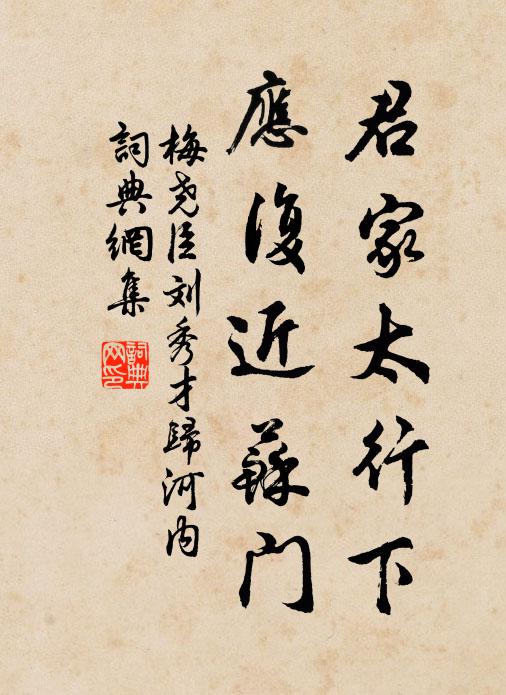 君家太行下
應復近蘇門
梅尧臣刘秀才歸河内
詞典網集
詞典
网印